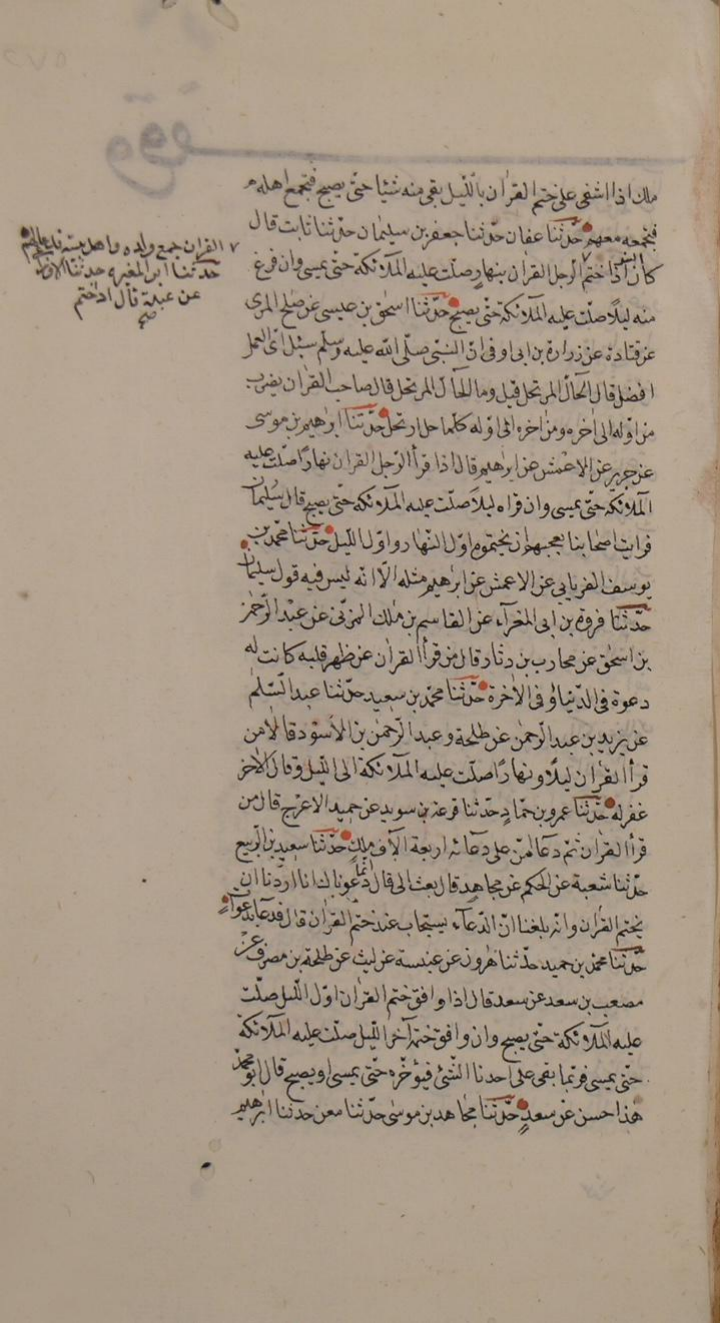 وقف
ملك اذا اشفى على ختم القرٰان بالليل بقى منه شيئا حتى يصبح فيجمع اهله
فيختمه معهم حدثنا عفان حدثنا جعفر بن سليمان حدثنا ثابت قال
كان انس اذا ختم الرجل القرٰان بنهار صلت عليه الملائكة حتى يمسى وان فرغ
منه ليلا صلت عليه الملائكة حتى يصبح حدثنا اسحٰق بن عيسى عن صٰلح المرى
عن قتادة عن زرارة بن ابى اوفى ان النبى صلى الله عليه وسلم سئل اى العمل
افضل قال الحال المرتحل قيل وما الحال المرتحل قال صاحب القرٰان يضرب
من اوله الى اٰخره ومن اٰخره الى اوله كلما حل ارتحل حدثنا ابرٰهيم بن موسى
عن جرير عن الاعمش عن ابرٰهيم قال اذا قرأ الرجل القرٰان نهارا صلت عليه
الملائكة حتى يمسى وان قراه ليلا صلت عليه الملائكة حتى يصبح قال سليمان
فرايت اصحابنا يعجبهم ان يختموه اول النهار واول الليل حدثنا محمد بن
يوسف الفريابي عن الاعمش عن ابرٰهيم مثله الا انه ليس فيه قول سليمان
حدثنا فروة بن ابى المغرآء عن القاسم بن مٰلك المزنى عن عبد الرحمٰن
بن اسحٰق عن محارب بن دثار قال من قرأ القرٰان عن ظهر قلبه كانت له
دعوة فى الدنيا او فى الاٰخرة حدثنا محمد بن سعيد حدثنا عبد السلٰم
عن يزيد بن عبد الرحمٰن عن طلحة وعبد الرحمٰن بن الاسود قالا من
قرأ القرٰان ليلا ونهارا صلت عليه الملائكة الى الليل وقال الاٰخر
غفر له حدثنا عمرو بن حماد حدثنا قزعة بن سويد عن حميد الاعرج قال من
قرأ القرٰان ثم دعا امن على دعائه اربعة اٰلاف ملك حدثنا سعيد بن الربيع
حدثنا شعبة عن الحكم عن مجاهد قال بعث الى قال انما دعوناك انا اردنا ان
نختم القرٰان وانه بلغنا ان الدعآء يستجاب عند ختم القرٰان قال فدعا بدعوات
حدثنا محمد بن حميد حدثنا هٰرون عن عنبسة عن ليث عن طلحة بن مصرف عن
مصعب بن سعد عن سعد قال اذا وافق ختم القرٰان اول الليل صلت
عليه الملائكة حتى يصبح وان وافق ختمه آخر الليل صلت عليه الملائكة
حتى يمسى فربما بقى على احدنا الشئ فيؤخره حتى يمسى او يصبح قال ابو محمد
هٰذا حسن عن سعد حدثنا مجاهد بن موسى حدثنا معن حدثنا ابرٰهيم
القران جمع ولده واهل بيته فدعا لهم
حدثنا ابو المغيره حدثنا الاوزاعى
عن عبدة قال اذا ختم
صح